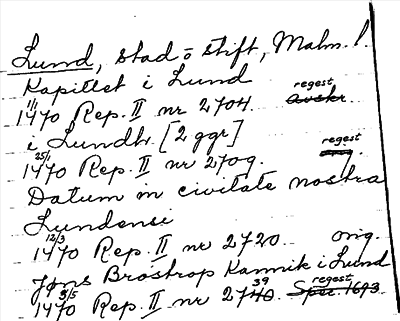 Lund, stad o stift, Malm. l.
Kapitlet i Lund
11/1 1470 Rep. II nr 2704. regest avskr.
i Lundh. [2 ggr]
25/1 1470 Rep. II nr 2709. regest orig.
Datum in civitate nostra
Lundensi
12/3 1470 Rep. II nr 2720. orig.
Jöns Brostrop Kannik i Lund
3/5 1470 Rep. II nr 2740. 39 regest Spec. 1693.